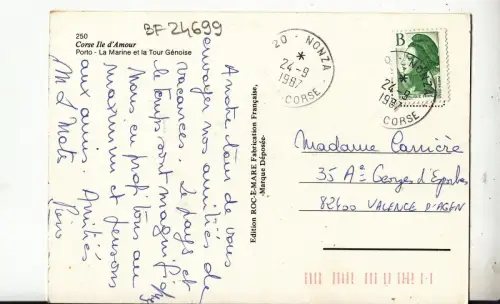 BF 24699
250
Corse Ile d'Amour
Porto - La Marine et la Tour Génoise
A notre tour de vous
envoyer nos amitiés de
vacances. Le pays et
le temps sont magnifiques
Nous en profitons au
maximum et pensons
aux amis Amitiés
Edition ROC-E-MARE Fabrication Française,
-Marque Déposée-
20 - NONZA
*
24-9
1987
CORSE
B
NONZA
*
24-9
1987
CORSE
Madame Carrière
35 Aᵉ Georges d'Esparbès
82400 VALENCE D'AGEN